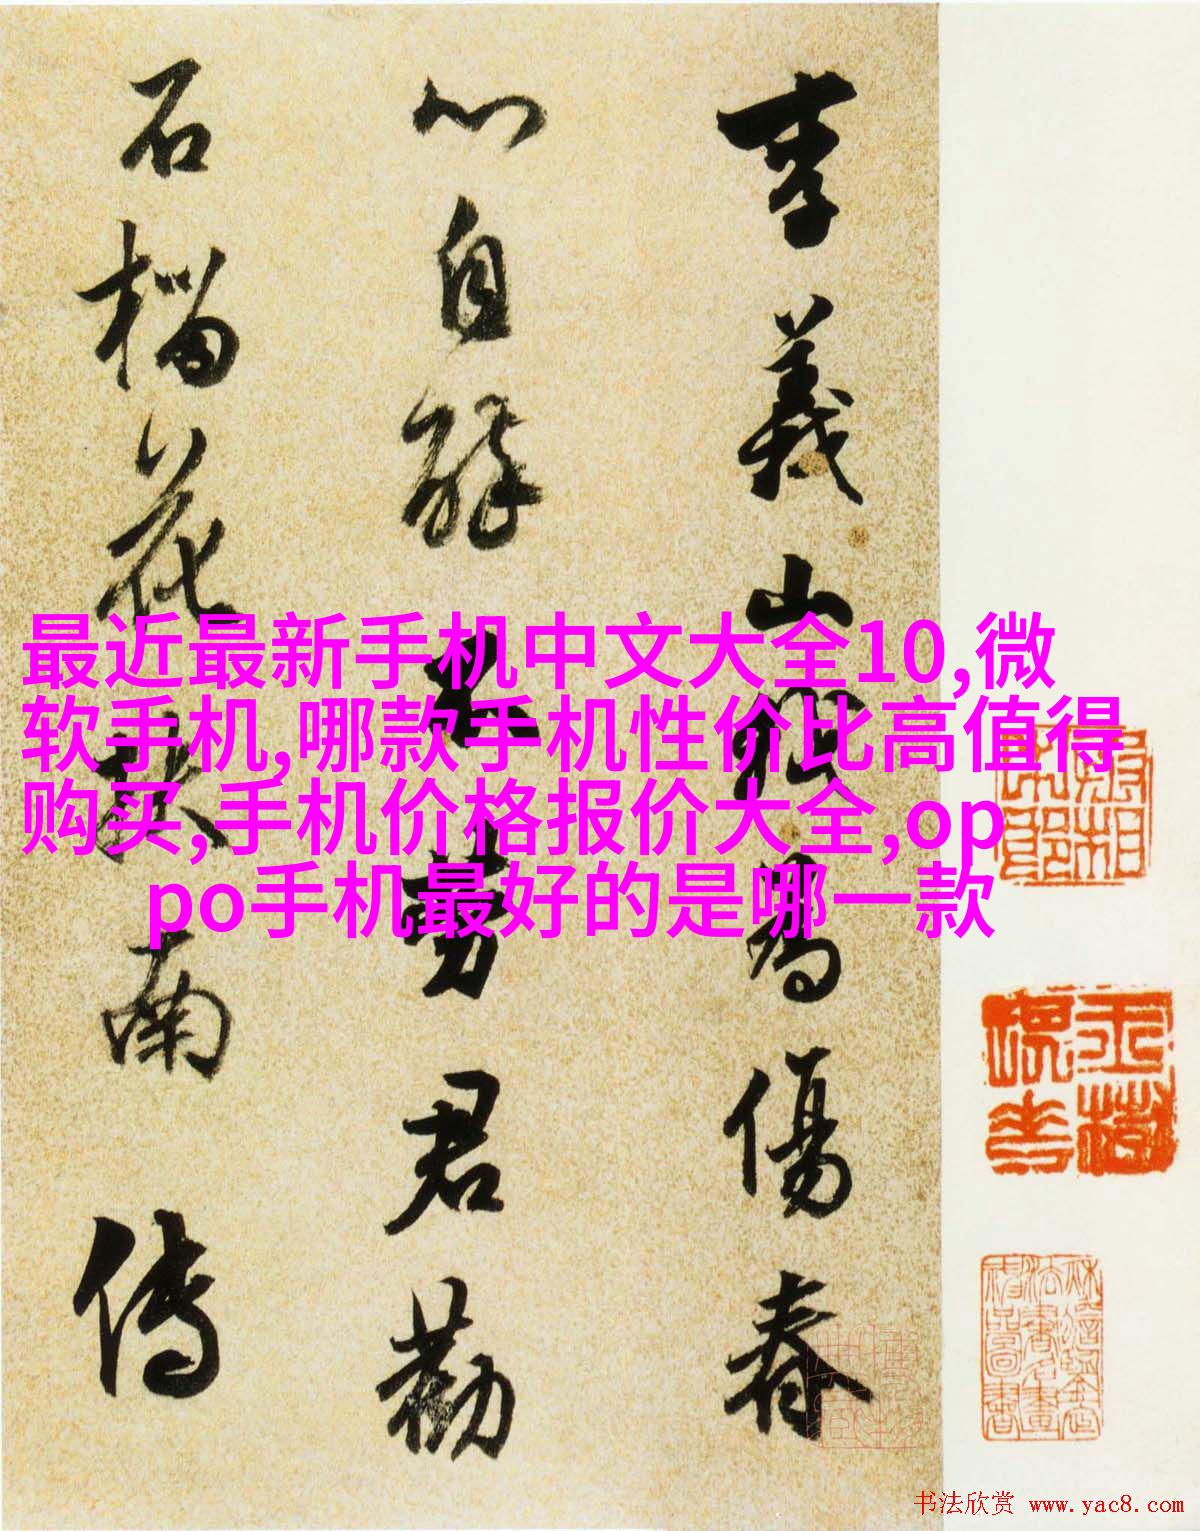 李義山為傷春
心自醉不勞君勸
石榴花南傳
最近最新手机中文大全10,微
软手机,哪款手机性价比高值得
购买,手机价格报价大全,op
po手机最好的是哪一款
书法欣赏 www.yac8.com